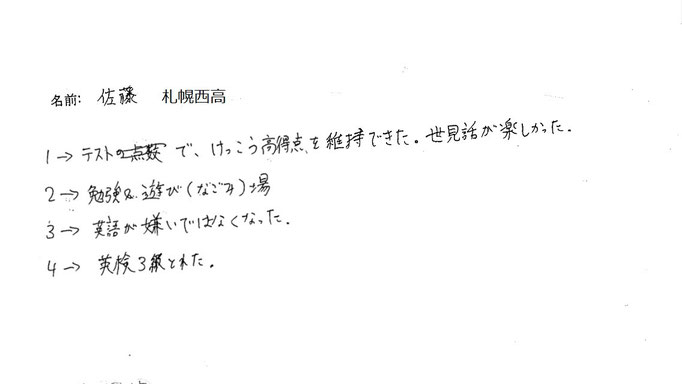 名前: 佐藤 札幌西高
1→ テストで、けっこう高得点を維持できた。世見話が楽しかった。
2→ 勉強&遊び(なごみ)場
3→ 英語が嫌いではなくなった。
4→ 英検3級とれた。